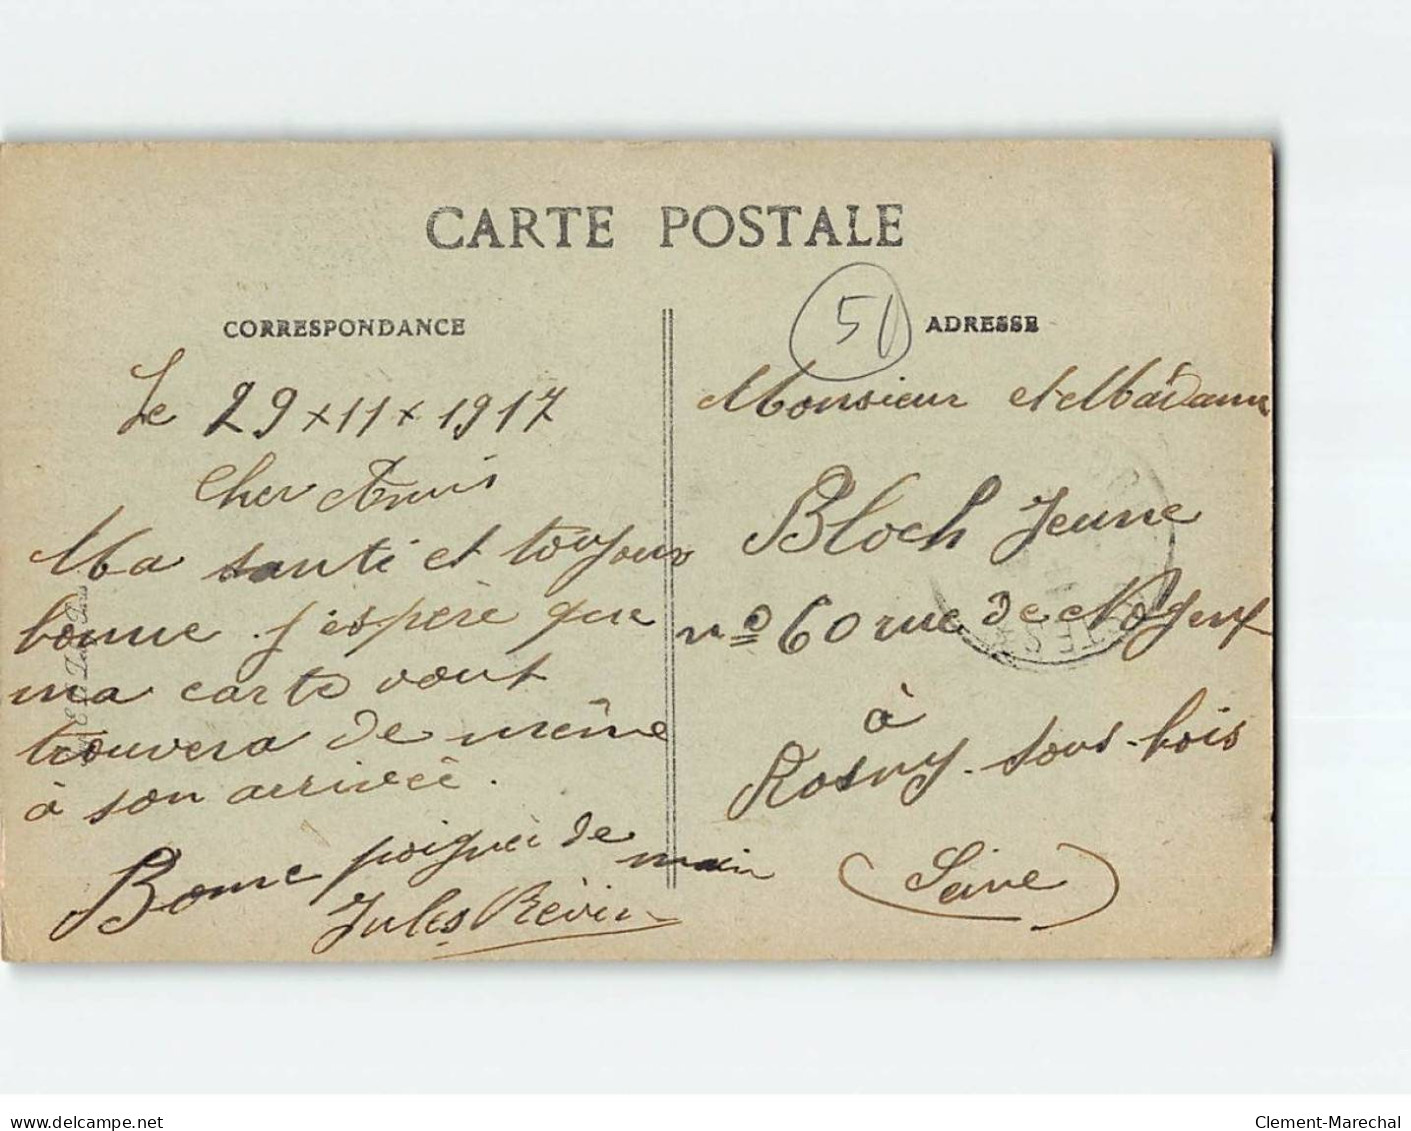 CARTE POSTALE
CORRESPONDANCE
Le 29 x 11 x 1917
Cher Amis
Ma santé et toujours
bonne j'espère que
ma carte vout
trouvera de même
à son arrivée.
Bonne poignée de main
Jules
51
ADRESSE
Monsieur et Madame
Bloch Jeune
n° 60 rue de Nogent
à
Rosny-sous-bois
(Seine)
delcampe.net
Clement-Marechal